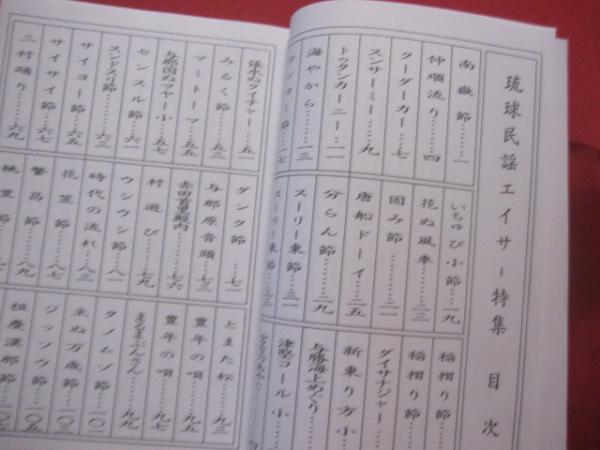 琉球民謡エイサー特集 目次
南嶽節……一
仲順流り……四
クーダーカー……七
スンサーミー……九
トゥタンカーニー……一一
海やから……一三
テンヨー節……一七
いちゅび小節……一九
花ぬ風車……二三
固み節……二一
唐船ドーイ……二五
分らん節……二九
スーリー東節……三一
スーリー東節……三一
稲摺り節
稲摺り節
ダイサナジャー
新東り方小
与勝海上めぐり
津堅コール小
張水ぬクイチャー……五一
みるく節……五三
マミトーマ……五五
与那国ぬマヤー小……五七
センスル節……六一
スンドスリ節……六三
サイヨー節……六五
サイサイ節……六七
三村踊り……六九
ダンク節……七一
与那原音頭……七三
赤田首里殿内……七六
村遊び……七九
ウシウシ節……八一
時代の流れ……八三
花笠節……八七
繁昌節……八九
桃里節
とまた松……九三
豊年の唄……九五
豊年の唄……九七
まるまぶんさん……九九
タノムゾ節……一〇一
主ぬ万歳節……一〇三
ジッソウ節……一〇五
祖慶漢那節